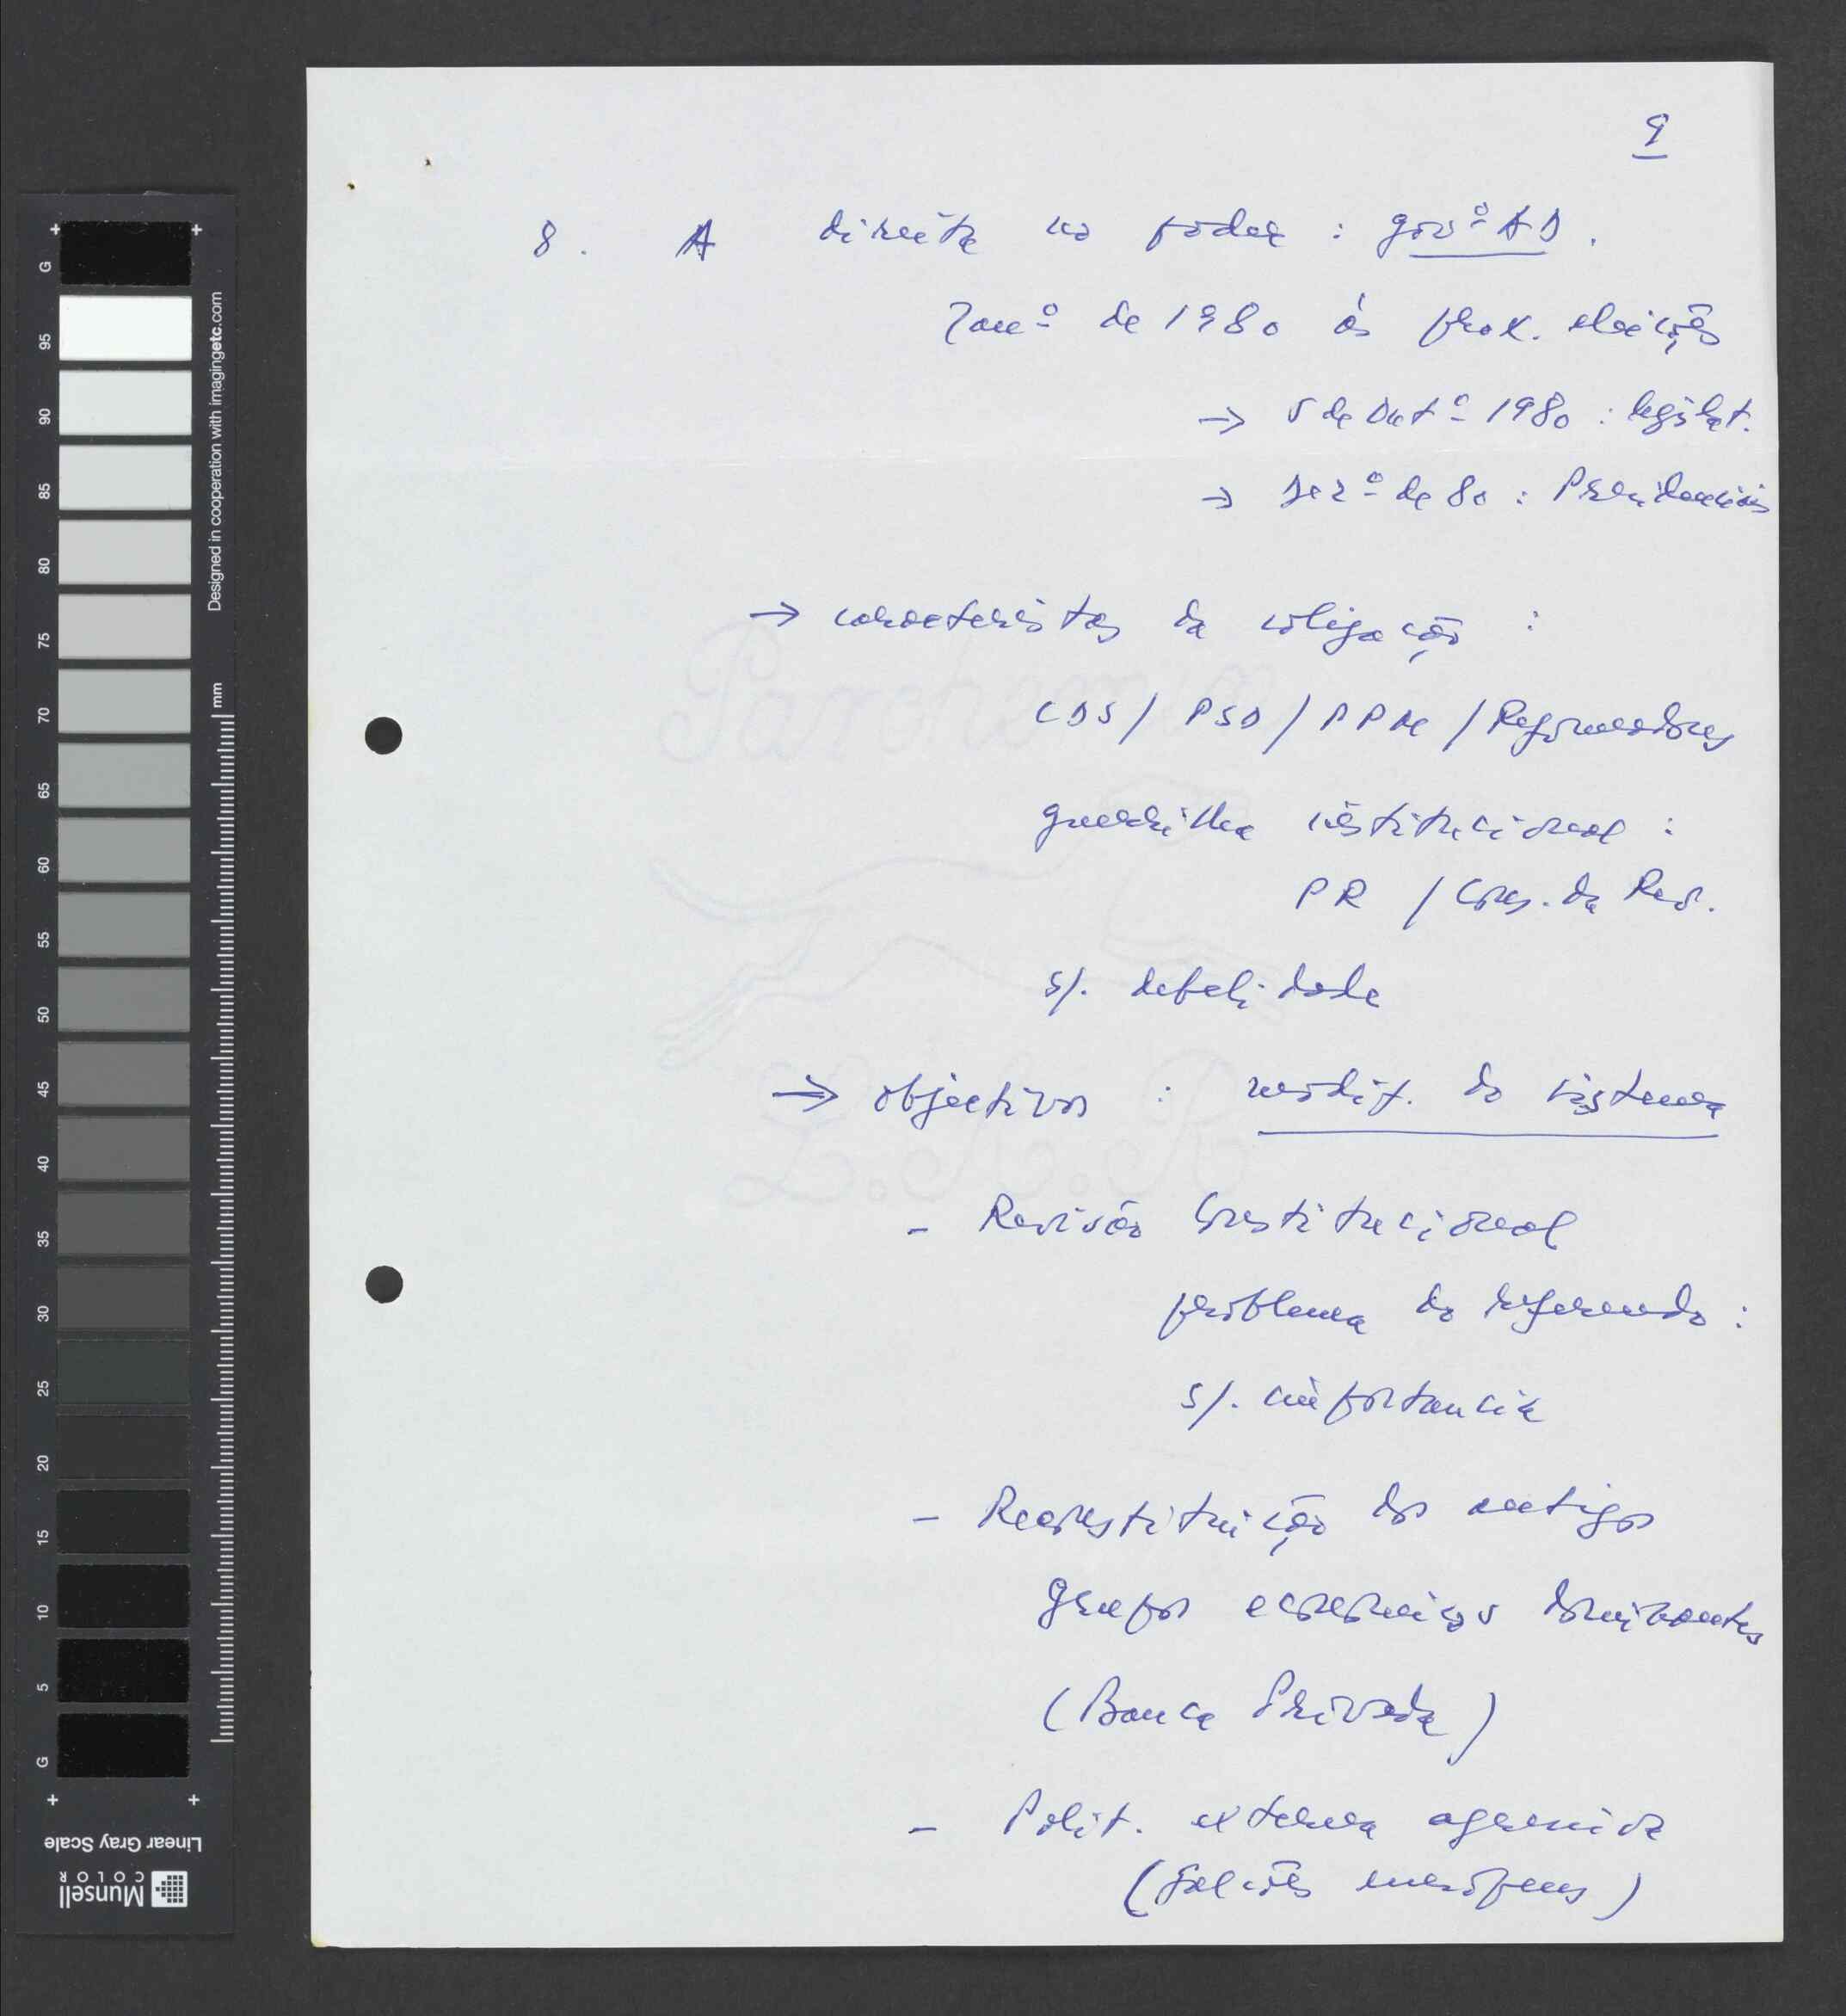 9
8. A direita no poder : govº AD.
Janº de 1980 às prox. eleições
→ 5 de Outº 1980 : legislat.
→ Dezº de 80 : Presidenciais
→ caracteristas da coligação :
CDS / PSD / PPM / Reformadores
guerrilha institucional :
PR / Cons. da Rev.
s/. debilidade
→ objectivos : modif. do sistema
- Revisão Constitucional
problema do referendo :
s/. importancia
- Reconstituição dos antigos
grupos economicos dominantes
(Banca Privada)
- Polit. externa agressiva
(falcões europeus)
Parchemin
L.A.R
Designed in cooperation with imagingetc.com
mm
G 95 90 85 80 75 70 65 60 55 50 45 40 35 30 25 20 15 10 5 G
Linear Gray Scale
Munsell
COLOR